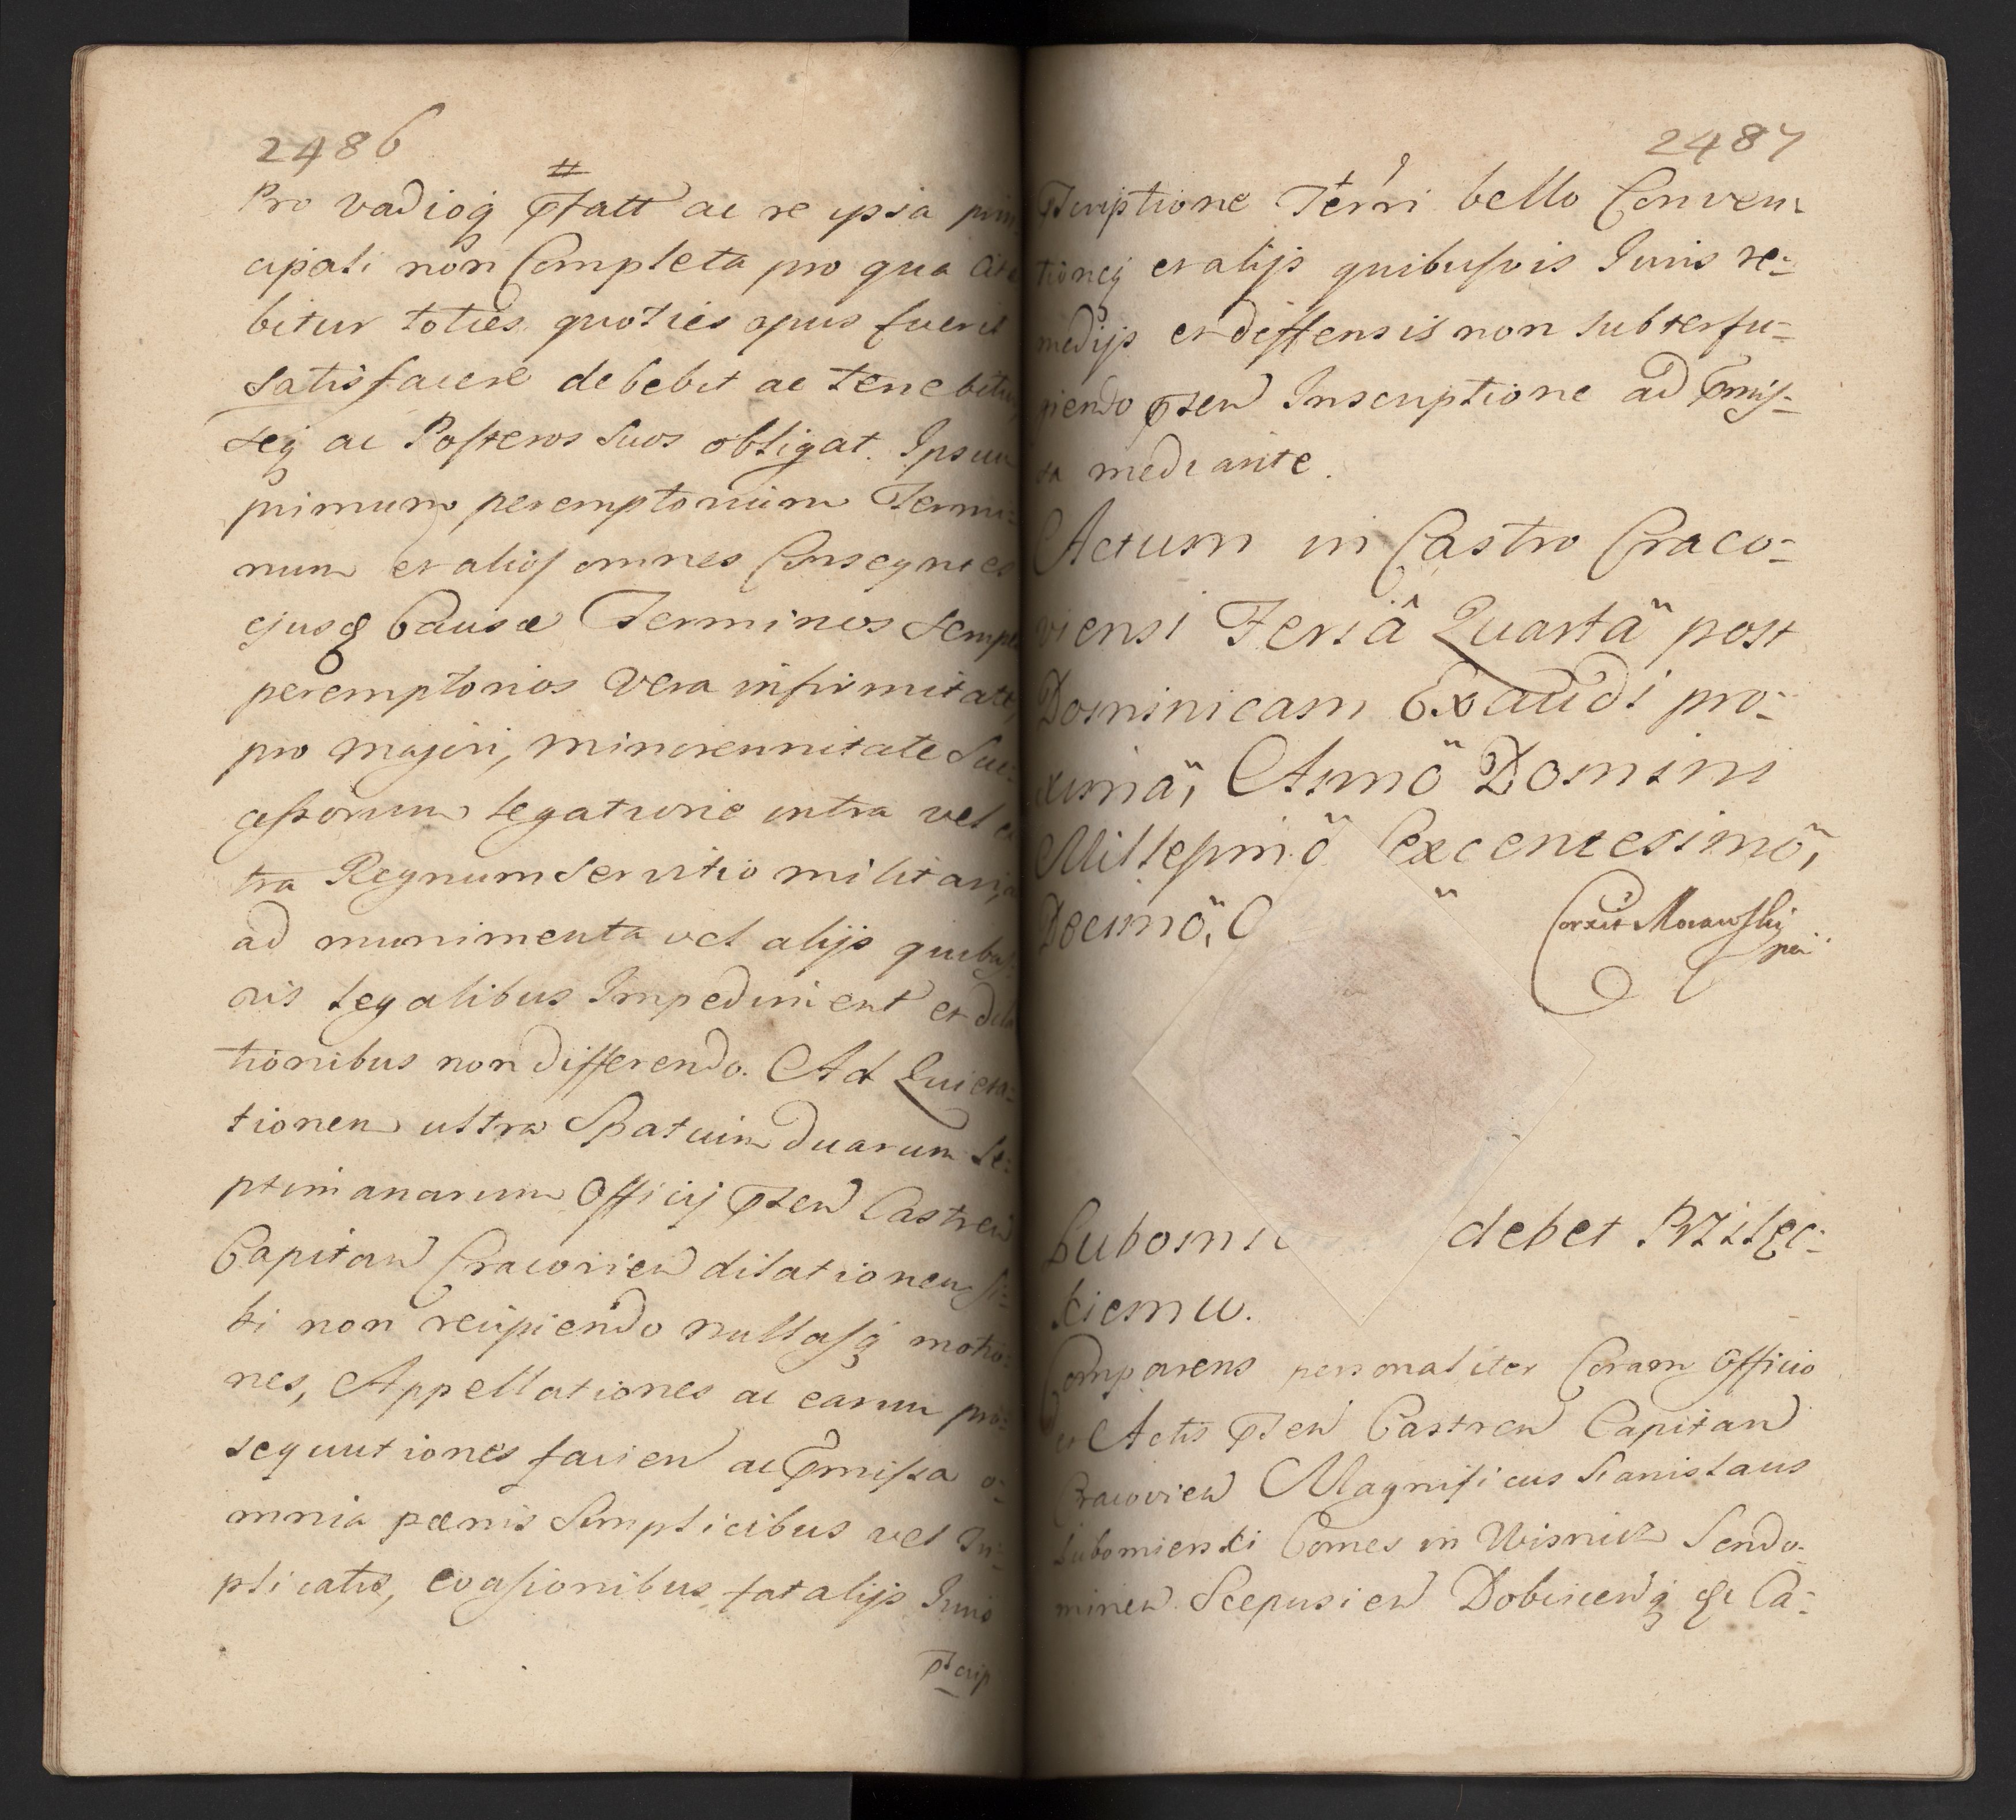 2486
Pro vadioq ꝑfatt ac re ipsa prin
cipali non Completa pro qua Cita
bitur toties quoties opus fuerit
satisfacere debebit ac tenebitur
seq ac Posteros suos obligat. Ipsum
primum peremptorium Termi=
num et alios omnes Consequtes
ejusq Causæ Terminos semper
peremptorios vera infirmitate,
pro majori, minorennitate Suc=
cessorum legatione intra vel ex
tra Regnum servitio militari,
ad munimenta vel alijs quibus=
vis legalibus Impediment et dila
tionibus non differendo. Ad Quieta=
tionem ultra Spatium duarum se=
ptimanarum Officij ꝑsen Castren
Capitan Cracovien dilationem si=
bi non recipiendo nullasq motio=
nes, Appellationes ac earum pro=
sequutiones facien ac ꝑmissa o=
mnia pœnis Simplicibus vel Tri=
plicatis, evasionibus fatalijs Juris
ꝑscrip
2487
ꝑscriptione Terri bello Conven
tioneq et alijs quibusvis Juris re=
medijs et deffensis non subterfu=
giendo ꝑsen Inscriptione ad ꝑmis=
sa mediante.
Actum in Castro Craco=
viensi Feriâ Quartâ post
Dominicam Exaudi pro=
ximâ, Annô Domini
Millesimô Sexcentesimô,
Decimô,
Corxit Morawskij
Lubomi debet Przilęc=
kiemu.
Comparens personaliter Coram Officio
et Actis ꝑsen Castren Capitan
Cracovien Magnificus Stanislaus
Lubomierski Comes in Wisnicz Sendo=
mirien Scepusien Dobcicenq &c Ca=